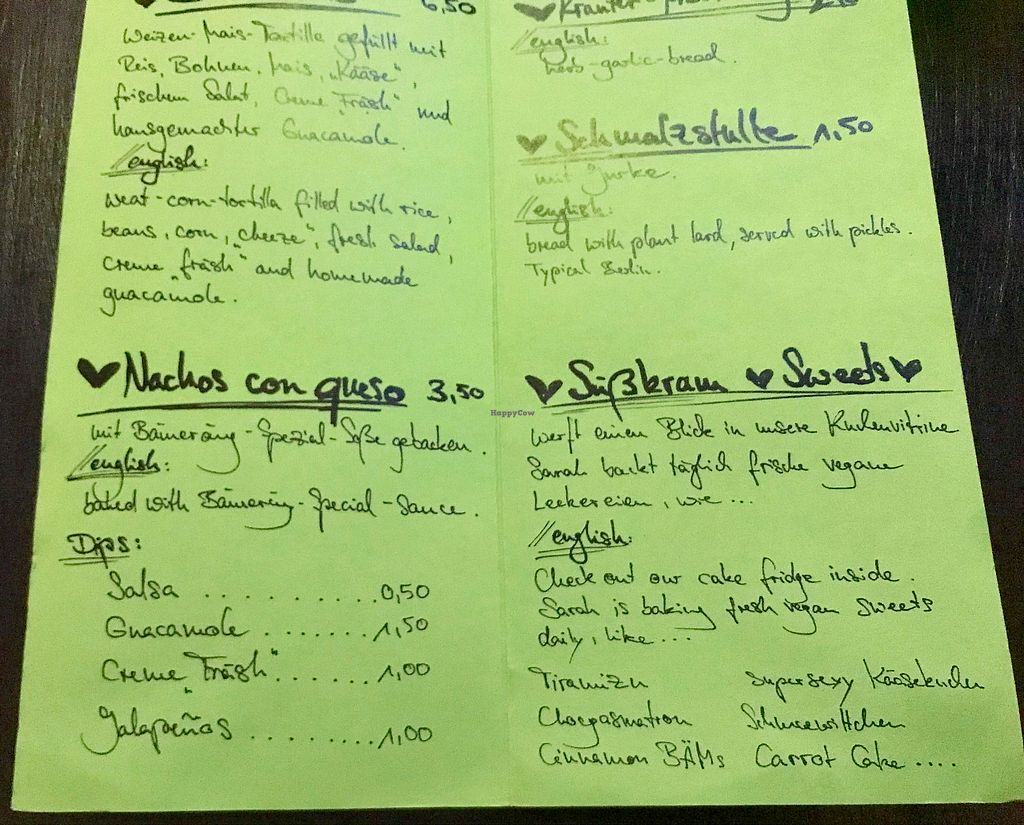 6,50
Weizen-Mais-Tortilla gefüllt mit
Reis, Bohnen, Mais, „Kääse",
frischem Salat, Creme „Fräsh" und
hausgemachter Guacamole.
//english:
weat-corn-tortilla filled with rice,
beans, corn, „cheeze", fresh salad,
creme „fräsh" and homemade
guacamole.
♥Nachos con queso 3,50
mit Bämeräng-Spezial-Soße gebacken.
//english:
baked with Bämeräng-Special-Sauce.
Dips:
Salsa ..........0,50
Guacamole .......1,50
Creme „Fräsh".......1,00
Jalapeños .........1,00
♥Kräuter-
//english:
herb-garlic-bread.
♥Schmalzstulle 1,50
mit Gurke.
//english:
bread with plant lard, served with pickles.
Typical Berlin.
♥Süßkram ♥Sweets♥
werft einen Blick in unsere Kuchenvitrine
Sarah backt täglich frische vegane
Leckereien, wie ...
//english:
Check out our cake fridge inside.
Sarah is baking fresh vegan sweets
daily, like ...
Tiramizu
Supersexy Kääsekuchen
Chocgasmatron
Schneewittchen
Cinnamon BÄMs
Carrot Cake ....
HappyCow